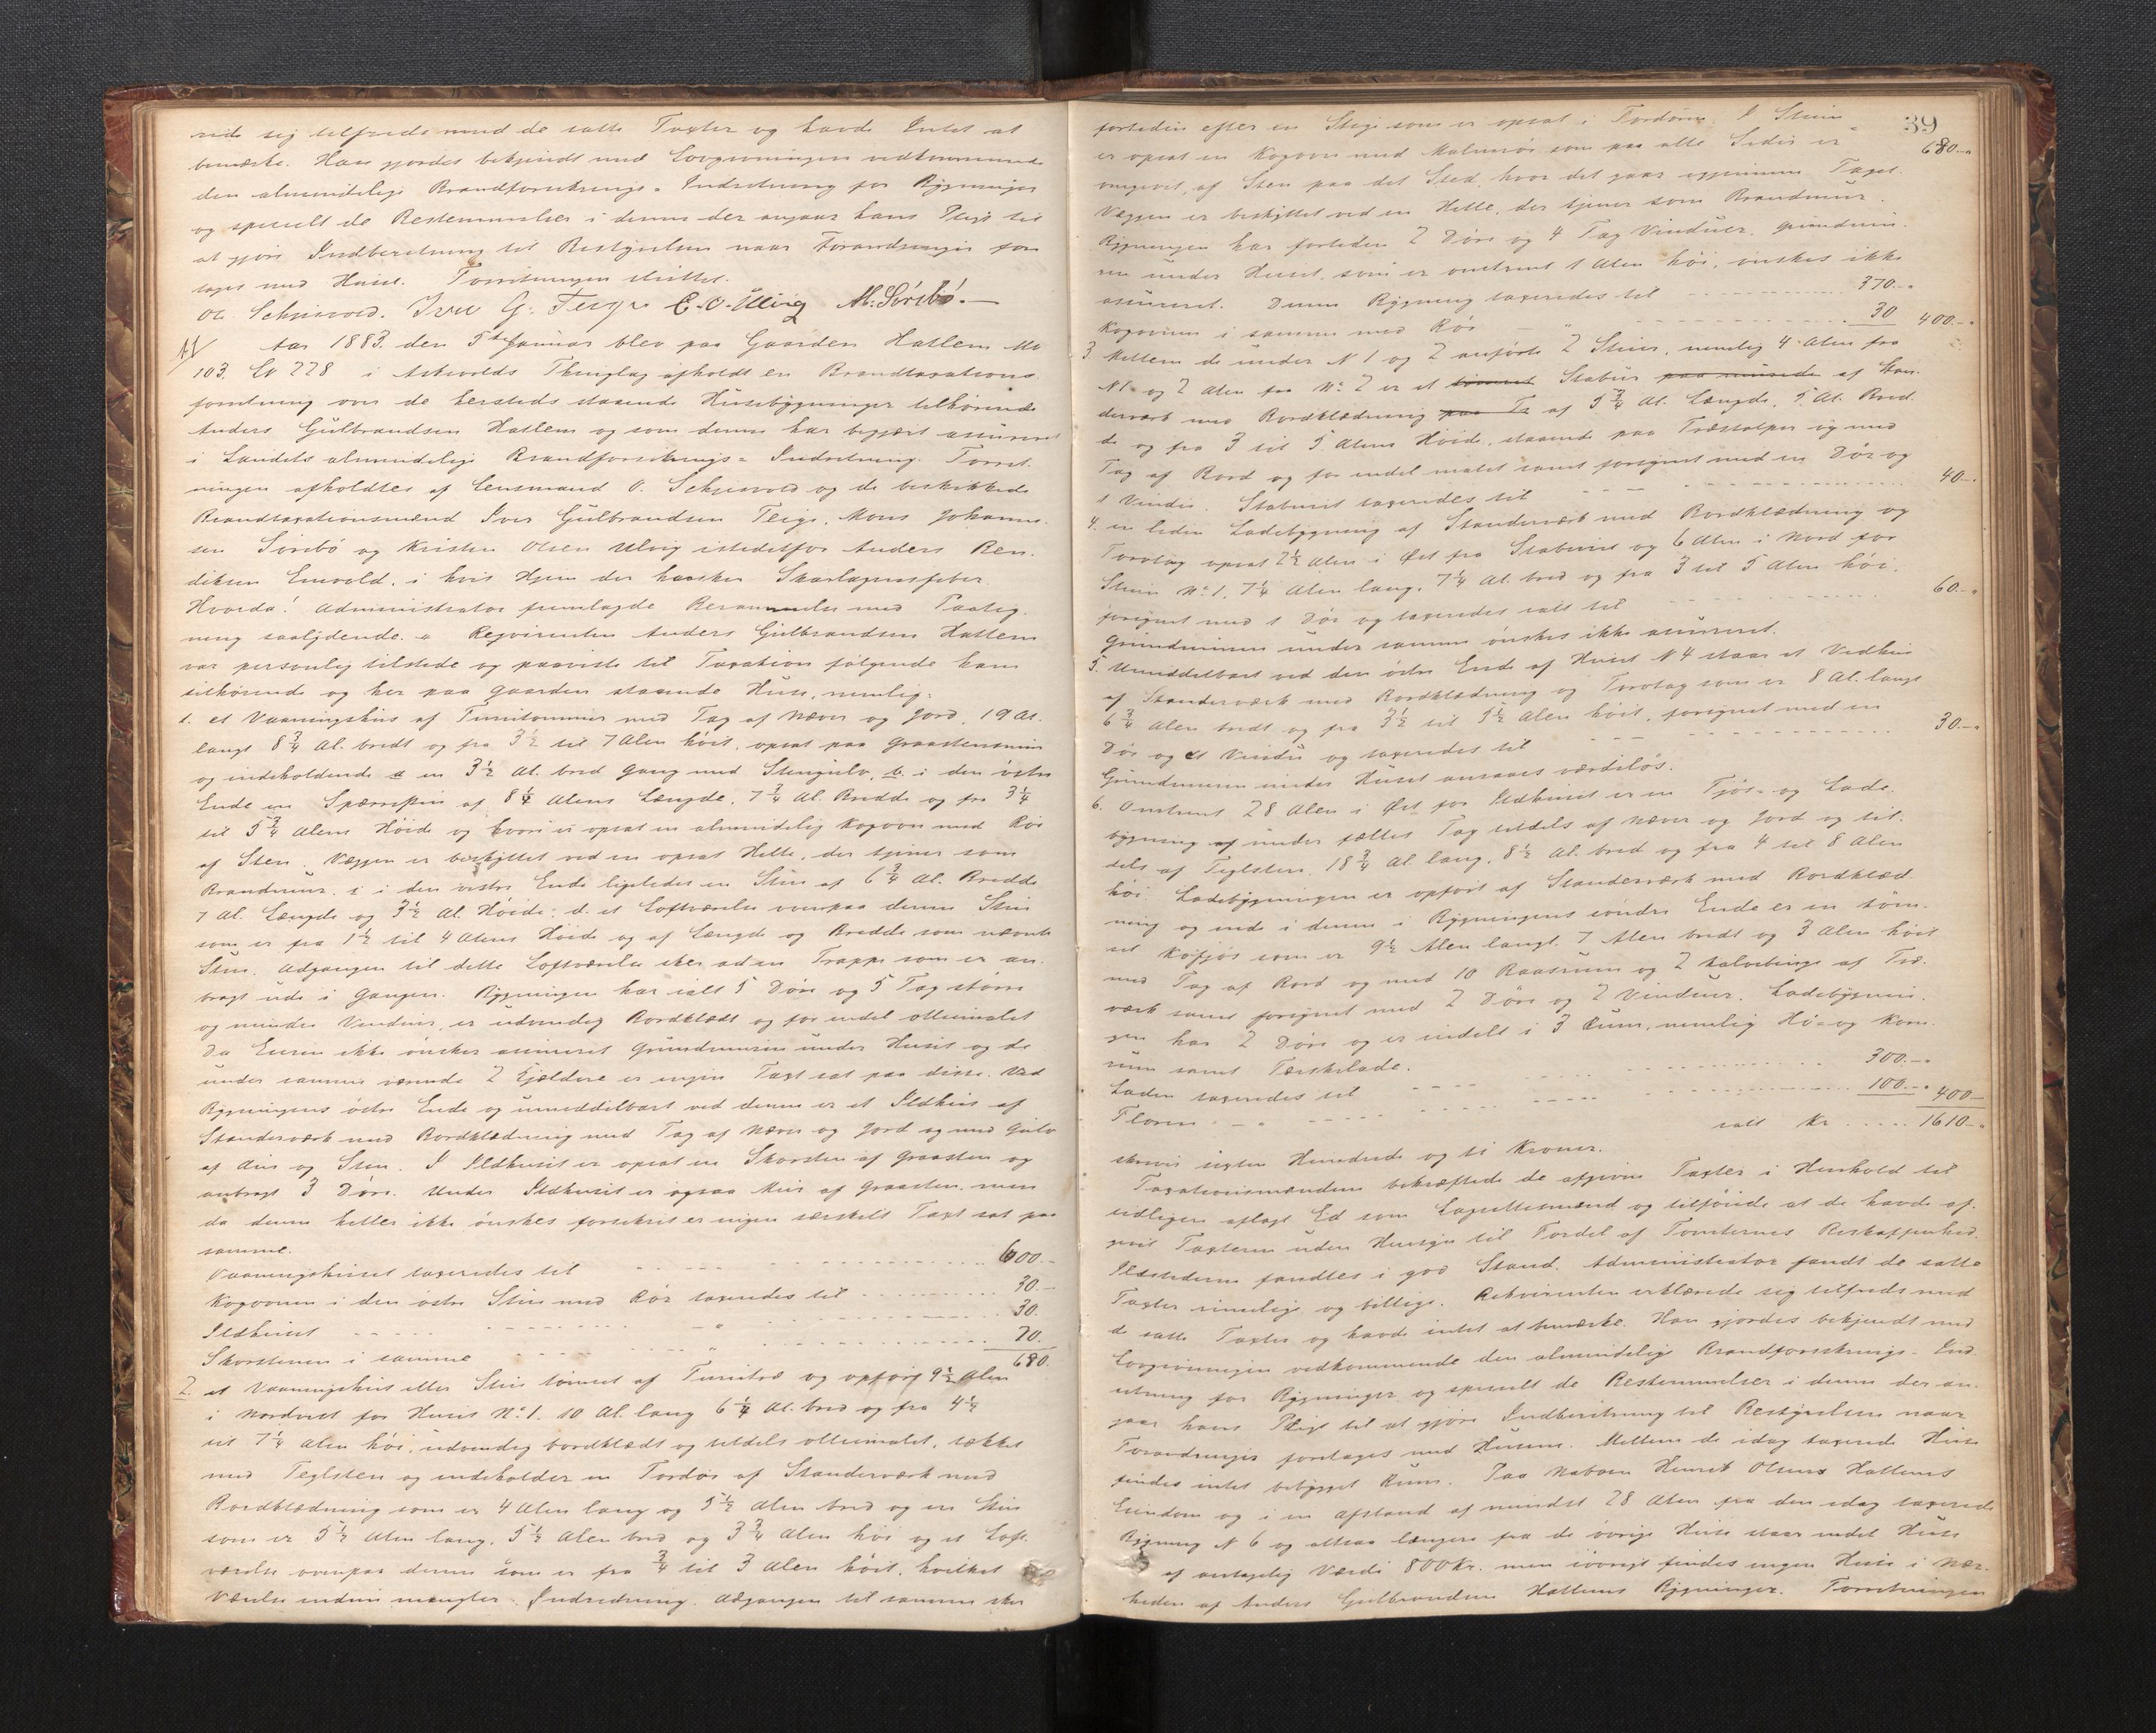 sede sig tilfreds med de satte Taxter og havde Intet at
bemærke. Han gjordes bekjendt med Lovgivningen vedkommende
den almindelige Brandforsikrings-Indretning for Bygninger
og specielt de Bestemmelser i denne der angaar hans Pligt til
at gjøre Indberetning til Bestyrelsen naar Forandringer fore
tages med Huset. Forretningen sluttet.
Ol. Iver G. Teige C. O. Ulvig M. Sörebö.
Aar 1883 den 5te Januar blev paa Gaarden Hatlem No
103. Lb 228 i Askvolds Thinglag afholdt en Brandtaxations
forretning over de hersteds staaende Husebygninger tilhørende
Anders Gulbrandsen Hatlem og som denne har begjært assureret
i Landets almindelige Brandforsikrings-Indretning. Forret-
ningen afholdtes af Lensmand O. og de beskikkede
Brandtaxationsmænd Iver Gulbrandsen Teige, Mons Johanne-
sen Sörebö og Kristen Olsen Ulvig istedetfor Anders Ben-
diksen, i hvis Hjem der hersker Skarlagensfeber.
Hvorda! Administrator fremlagde Berammelse med Paateg-
ning saalydende. Reqvirenten Anders Gulbrandsen Hatlem
var personlig tilstede og paaviste til Taxation følgende ham
tilhørende og her paa Gaarden staaende Huse, nemlig:
1. et Vaaningshus af Furutømmer med Tag af Næver og Jord, 19 Al.
langt 8 3/4 Al. bredt og fra 3 1/2 til 7 Alen høit, opsat paa Graastensmur
og indeholdende a en 3 1/2 Al. bred Gang med Stengulv, b. i den østre
Ende en af 8 1/4 Alens Længde, 7 3/4 Al. Bredde og fra 3 1/4
til 5 3/4 Alens Høide og hvori er opsat en almindelig Kogovn med Rör
af Sten. Væggen er beskyttet ved en opsat Helle, der tjener som
Brandmur. c i den vestre Ende ligeledes en Stue af 6 3/4 Al. Bredde
7 Al. Længde og 3 1/2 Al. Høide; d. et Loftværelse ovenpaa denne Stue
som er fra 1 1/2 til 4 Alens Høide og af Længde og Bredde som nævnte
Stue. Adgangen til dette Loftværelse sker ad en Trappe som er an-
bragt ude i Gangen. Bygningen har ialt 5 Døre og 5 Fag større
og mindre Vinduer, er udvendig Bordklædt og for endel oliemalet
Da Eieren ikke ønsker assureret Grundmuren under Huset og de
under samme værende 2 Kjældere er ingen Taxt sat paa disse. Ved
Bygningens østre Ende og umiddelbart ved denne er et Ildhus af
Standerværk med Bordklædning med Tag af Næver og Jord og med Gulv
af og Sten. I Ildhuset er opsat en Skorsten af Graasten og
anbragt 3 Døre. Under Ildhuset er ogsaa Mur af Graasten, men
da denne heller ikke ønskes forsikret er ingen særskilt Taxt sat paa
samme.
Vaaningshuset taxeredes til 600.-
Kogovnen i den østre Stue med Rör taxeredes til 30.-
Ildhuset 30.
Skorstenen i samme 20.
680.
2. et Vaaningshus eller Stue tømret af Furutræ og opført 9 1/2 Alen
i Nordvest for Huset No. 1. 10 Al. lang 6 1/4 Al. bred og fra 4 1/4
til 7 1/4 Alen høi, udvendig bordklædt og tildels oliemalet, tækket
med Teglsten og indeholder en Fordør af Standerværk med
Bordklædning som er 4 Alen lang og 5 1/2 Alen bred og en Stue
som er 5 1/2 Alen lang, 5 1/2 Alen bred og 3 3/4 Alen høi og et Loft-
værelse ovenpaa denne som er fra 3/4 til 3 Alen høit, hvilket
Værelse endnu mangler Indredning. Adgangen til samme sker
39
fortiden efter en Stige som er opsat i Fordøren. I Stuen
er opsat en Kogovn med Malmrör som paa alle Sider er 680.-
omgivet af Sten paa det Sted, hvor det gaar igjennem Taget.
Væggen er beskyttet ved en Helle, der tjener som Brandmur.
Bygningen har fortiden 2 Døre og 4 Fag Vinduer. Grundmu-
ren under Huset, som er omtrent 1 Alen høi, ønskes ikke
assureret. Denne Bygning taxeredes til 370.-
Kogovnen i samme med Rör 30 400.-
3. Mellem de under N 1 og 2 anførte 2 Stuer, nemlig 4 Alen fra
N 1 og 2 Alen fra No. 2 er et tømret Stabur paa murede af Stan-
derværk med Bordklædning paa Tr af 5 3/4 Al. Længde, 5 Al. Bred-
de og fra 3 til 5 Alens Høide, staaende paa Træstolper og med
Tag af Bord og for endel malet samt forsynet med en Dör og
1 Vindu. Staburet taxeredes til 40.-
4. en liden Ladebygning af Standerværk med Bordklædning og
Torvtag opsat 2 1/2 Alen i Øst fra Staburet og 6 Alen i Nord for
Stuen No. 1, 7 1/4 Alen lang, 7 1/4 Al. bred og fra 3 til 5 Alen høi,
forsynet med 1 Dör og taxeredes ialt til 60.-
Grundmuren under samme ønskes ikke assureret.
5. Umiddelbart ved den østre Ende af Huset N 4 staar et Vedhus
af Standerværk med Bordklædning og Torvtag som er 8 Al. langt
6 3/4 Alen bredt og fra 3 1/2 til 5 1/2 Alen høit, forsynet med en
Dör og et Vindu og taxeredes til 30.-
Grundmuren under Huset ansaaes værdiløs.
6. Omtrent 28 Alen i Øst for Ildhuset er en Fjös- og Lade-
bygning af under fælles Tag tildels af Næver og Jord og til-
dels af Teglsten, 18 3/4 Al. lang, 8 1/2 Al. bred og fra 4 til 8 Alen
høi. Ladebygningen er opført af Standerværk med Bordklæd-
ning og inde i denne i Bygningens søndre Ende er en töm-
ret Kofjös som er 9 1/2 Alen langt, 7 Alen bredt og 3 Alen høit
med Tag af Bord og med 10 Baasrum og 2 Kalvebinge af Træ-
værk samt forsynet med 2 Døre og 2 Vinduer. Ladebygnin-
gen har 2 Døre og er indelt i 3 Rum, nemlig Hö- og Korn-
rum samt Tærskelade.
Laden taxeredes til 300.-
Floren 100.- 400.-
ialt Kr 1610.-
skriver sexten Hundrede og ti Kroner.
Taxationsmændene bekræftede de afgivne Taxter i Henhold til
tidligere aflagt Ed som Lagrettesmænd og tilføiede at de havde af-
givet Taxterne uden Hensyn til Fordel af Tomternes Beskaffenhed.
Ildstederne fandtes i god Stand. Administrator fandt de satte
Taxter rimelige og billige. Rekvirenten erklærede sig tilfreds med
de satte Taxter og havde intet at bemærke. Han gjordes bekjendt med
Lovgivningen vedkommende den almindelige Brandforsikrings-Ind-
retning for Bygninger og specielt de Bestemmelser i denne der an-
gaar hans Pligt til at gjøre Indberetning til Bestyrelsen naar
Forandringer foretages med Husene. Mellem de idag taxerede Huse
findes intet bebygget Rum. Paa Naboen Henrik Olsens Hatlems
Eiendom og i en Afstand af mindst 28 Alen fra den idag taxerede
Bygning N 6 og altsaa længere fra de øvrige Huse staar endel Huse
af antagelig Værdi 800 Kr. men iøvrigt findes ingen Huse i Nær-
heden af Anders Gulbrandsen Hatlems Bygninger. Forretningen